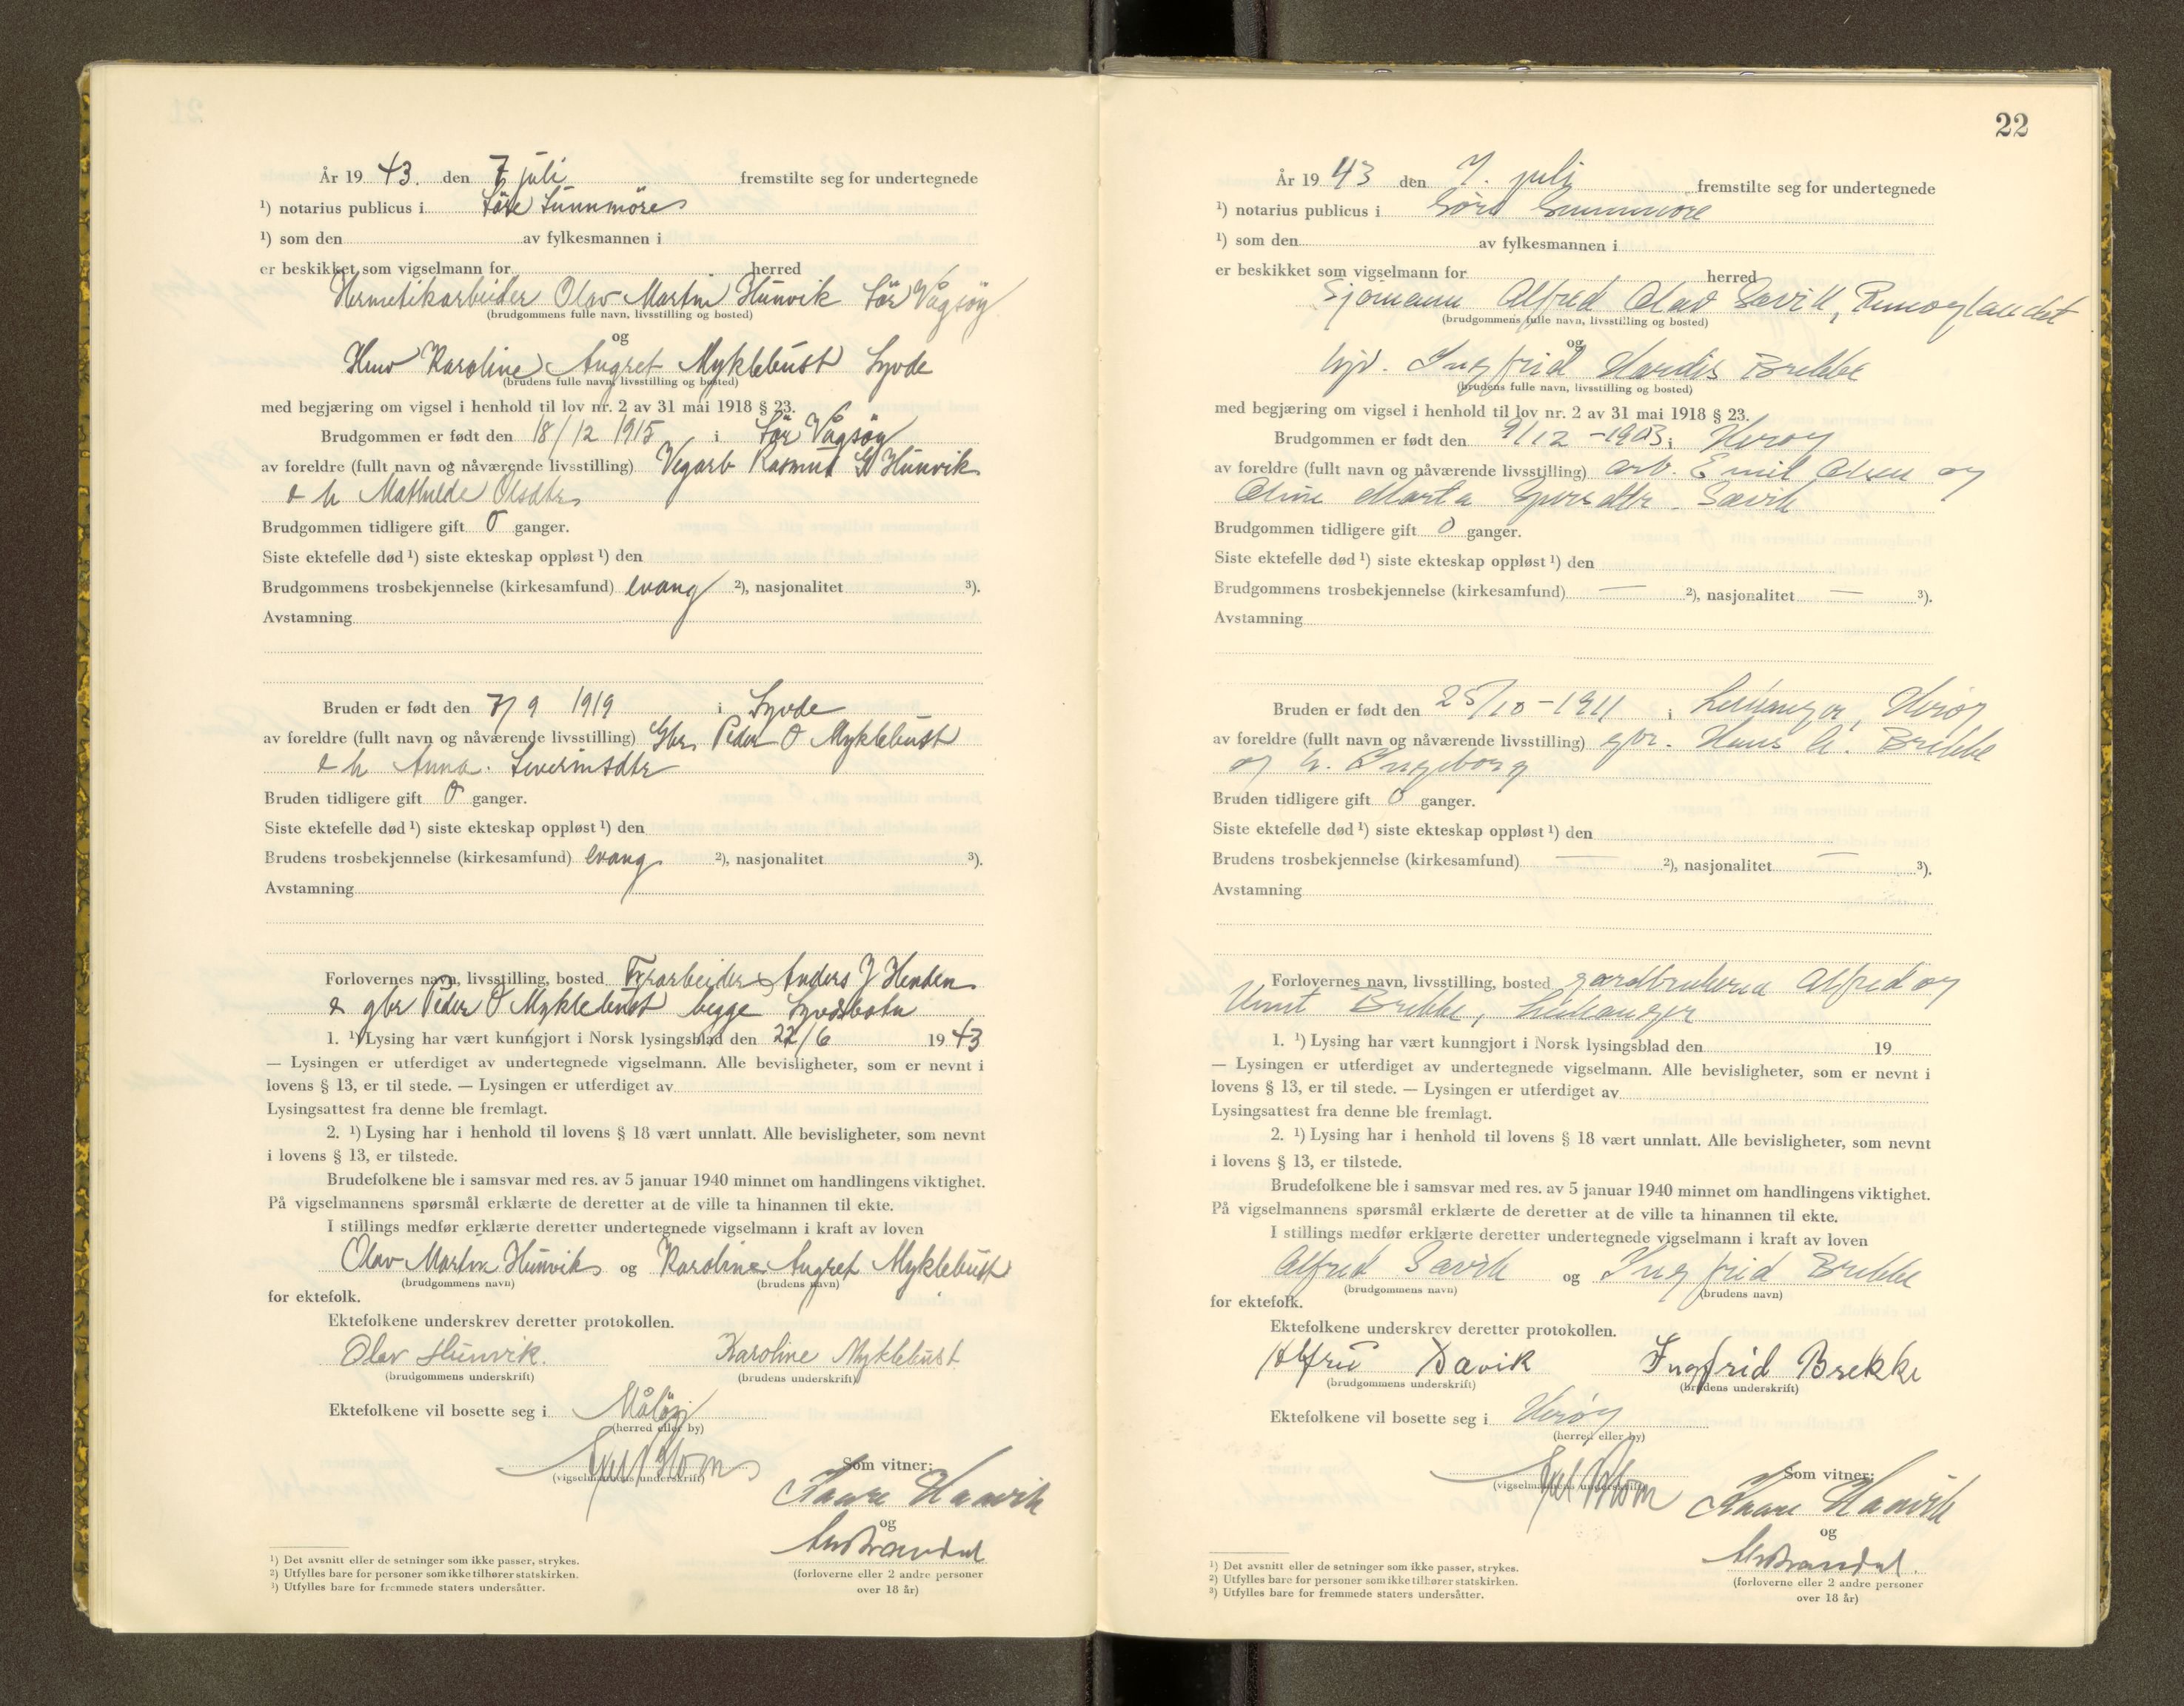 År 19 43. den 7 juli fremstilte seg for undertegnede
¹) notarius publicus i Söre Sunnmöre
¹) som den av fylkesmannen i
er beskikket som vigselmann for herred
Hermetikarbeider Olav Martin Hunvik Sör Vågsöy
(brudgommens fulle navn, livsstilling og bosted)
og
Karoline Angret Myklebust Syvde
(brudens fulle navn, livsstilling og bosted)
med begjæring om vigsel i henhold til lov nr. 2 av 31 mai 1918 § 23.
Brudgommen er født den 18/12 1915 i Sör Vågsöy
av foreldre (fullt navn og nåværende livsstilling) Vegarb Rasmus Hunvik
& h Mathilde Olsdtr
Brudgommen tidligere gift 0 ganger.
Siste ektefelle død ¹) siste ekteskap oppløst ¹) den
Brudgommens trosbekjennelse (kirkesamfund) evang ²), nasjonalitet ³).
Avstamning
Bruden er født den 7/9 1919 i Syvde
av foreldre (fullt navn og nåværende livsstilling) Gbr Peder O Myklebust
& h Anna Severinsdtr
Bruden tidligere gift 0 ganger.
Siste ektefelle død ¹) siste ekteskap oppløst ¹) den
Brudens trosbekjennelse (kirkesamfund) evang ²), nasjonalitet ³).
Avstamning
Forlovernes navn, livsstilling, bosted Anders J Henden
& gbr Peder O Myklebust begge Syvdsbotn
1. ¹) Lysing har vært kunngjort i Norsk lysingsblad den 22/6 19 43
— Lysingen er utferdiget av undertegnede vigselmann. Alle bevisligheter, som er nevnt i
lovens § 13, er til stede. — Lysingen er utferdiget av
Lysingsattest fra denne ble fremlagt.
2. ¹) Lysing har i henhold til lovens § 18 vært unnlatt. Alle bevisligheter, som nevnt
i lovens § 13, er tilstede.
Brudefolkene ble i samsvar med res. av 5 januar 1940 minnet om handlingens viktighet.
På vigselmannens spørsmål erklærte de deretter at de ville ta hinannen til ekte.
I stillings medfør erklærte deretter undertegnede vigselmann i kraft av loven
Olav Martin Hunvik og Karoline Angret Myklebust
(brudgommens navn) (brudens navn)
for ektefolk.
Ektefolkene underskrev deretter protokollen.
Olav Hunvik. Karoline Myklebust
(brudgommens underskrift) (brudens underskrift)
Ektefolkene vil bosette seg i Måløy
(herred eller by)
(vigselmannens underskrift)
Som vitner:
Kaare Haavik
og
(forloverne eller 2 andre personer
over 18 år)
¹) Det avsnitt eller de setninger som ikke passer, strykes.
²) Utfylles bare for personer som ikke tilhører statskirken.
³) Utfylles bare for fremmede staters undersåtter.
22
År 19 43 den 7. juli fremstilte seg for undertegnede
¹) notarius publicus i Søre Sunnmøre
¹) som den av fylkesmannen i
er beskikket som vigselmann for herred
Sjømann Alfred Olav Sævik, Remøylandet
(brudgommens fulle navn, livsstilling og bosted)
og
Ingfrid Hardis Brekke
(brudens fulle navn, livsstilling og bosted)
med begjæring om vigsel i henhold til lov nr. 2 av 31 mai 1918 § 23.
Brudgommen er født den 9/12 -1903 i Herøy
av foreldre (fullt navn og nåværende livsstilling) arb. Emil Olsen og
Oline Marta Sævik
Brudgommen tidligere gift 0 ganger.
Siste ektefelle død ¹) siste ekteskap oppløst ¹) den
Brudgommens trosbekjennelse (kirkesamfund) — ²), nasjonalitet — ³).
Avstamning
Bruden er født den 25/10 -1911 i Leikanger, Herøy
av foreldre (fullt navn og nåværende livsstilling) gbr. Hans A. Brekke
og h. Ingeborg
Bruden tidligere gift 0 ganger.
Siste ektefelle død ¹) siste ekteskap oppløst ¹) den
Brudens trosbekjennelse (kirkesamfund) — ²), nasjonalitet — ³).
Avstamning
Forlovernes navn, livsstilling, bosted gardbrukerne Alfred og
Brekke, Leikanger
1. ¹) Lysing har vært kunngjort i Norsk lysingsblad den 19
— Lysingen er utferdiget av undertegnede vigselmann. Alle bevisligheter, som er nevnt i
lovens § 13, er til stede. — Lysingen er utferdiget av
Lysingsattest fra denne ble fremlagt.
2. ¹) Lysing har i henhold til lovens § 18 vært unnlatt. Alle bevisligheter, som nevnt
i lovens § 13, er tilstede.
Brudefolkene ble i samsvar med res. av 5 januar 1940 minnet om handlingens viktighet.
På vigselmannens spørsmål erklærte de deretter at de ville ta hinannen til ekte.
I stillings medfør erklærte deretter undertegnede vigselmann i kraft av loven
Alfred Sævik og Ingfrid Brekke
(brudgommens navn) (brudens navn)
for ektefolk.
Ektefolkene underskrev deretter protokollen.
Alfred Sævik Ingfrid Brekke
(brudgommens underskrift) (brudens underskrift)
Ektefolkene vil bosette seg i Herøy
(herred eller by)
(vigselmannens underskrift)
Som vitner:
Kaare Haavik
og
(forloverne eller 2 andre personer
over 18 år)
¹) Det avsnitt eller de setninger som ikke passer, strykes.
²) Utfylles bare for personer som ikke tilhører statskirken.
³) Utfylles bare for fremmede staters undersåtter.